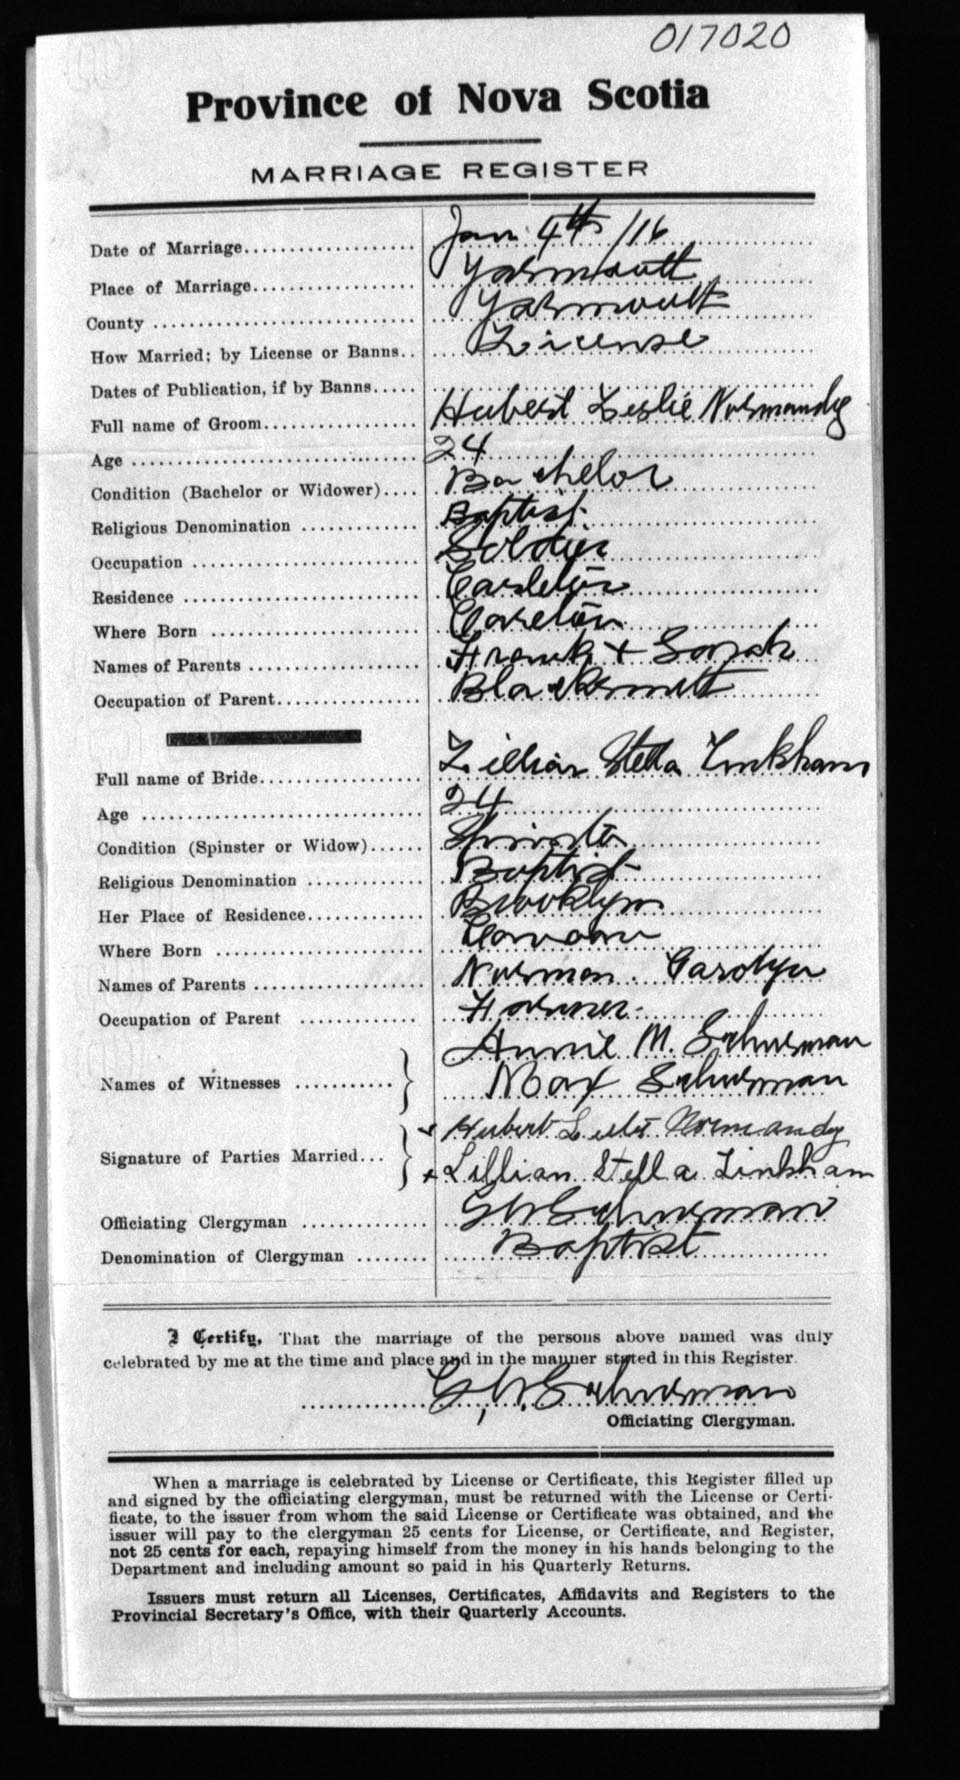 017020
Province of Nova Scotia
MARRIAGE REGISTER
Date of Marriage.................... Jan 4th /16
Place of Marriage................... Yarmouth
County .............................. Yarmouth
How Married; by License or Banns.. License
Dates of Publication, if by Banns.....
Full name of Groom.................. Hubert Leslie Normandy
Age ................................. 24
Condition (Bachelor or Widower).... Bachelor
Religious Denomination .............. Baptist
Occupation .......................... Soldier
Residence ........................... Carleton
Where Born ......................... Carleton
Names of Parents .................... Frank + Sarah
Occupation of Parent................. Blacksmith
Full name of Bride................... Lillian Stella Tinkham
Age ................................. 24
Condition (Spinster or Widow)...... Spinster
Religious Denomination .............. Baptist
Her Place of Residence.............. Brooklyn
Where Born .........................
Names of Parents .................... Norman Carolyn
Occupation of Parent ............... Farmer
Annie M. Schurman
Names of Witnesses ............ } Max Schurman
x Hubert Leslie Normandy
Signature of Parties Married... } x Lillian Stella Tinkham
Officiating Clergyman ............... G W Schurman
Denomination of Clergyman ......... Baptist
I Certify, That the marriage of the persons above named was duly
celebrated by me at the time and place and in the manner stated in this Register.
G. W. Schurman
Officiating Clergyman.
When a marriage is celebrated by License or Certificate, this Register filled up
and signed by the officiating clergyman, must be returned with the License or Certi-
ficate, to the issuer from whom the said License or Certificate was obtained, and the
issuer will pay to the clergyman 25 cents for License, or Certificate, and Register,
not 25 cents for each, repaying himself from the money in his hands belonging to the
Department and including amount so paid in his Quarterly Returns.
Issuers must return all Licenses, Certificates, Affidavits and Registers to the
Provincial Secretary's Office, with their Quarterly Accounts.